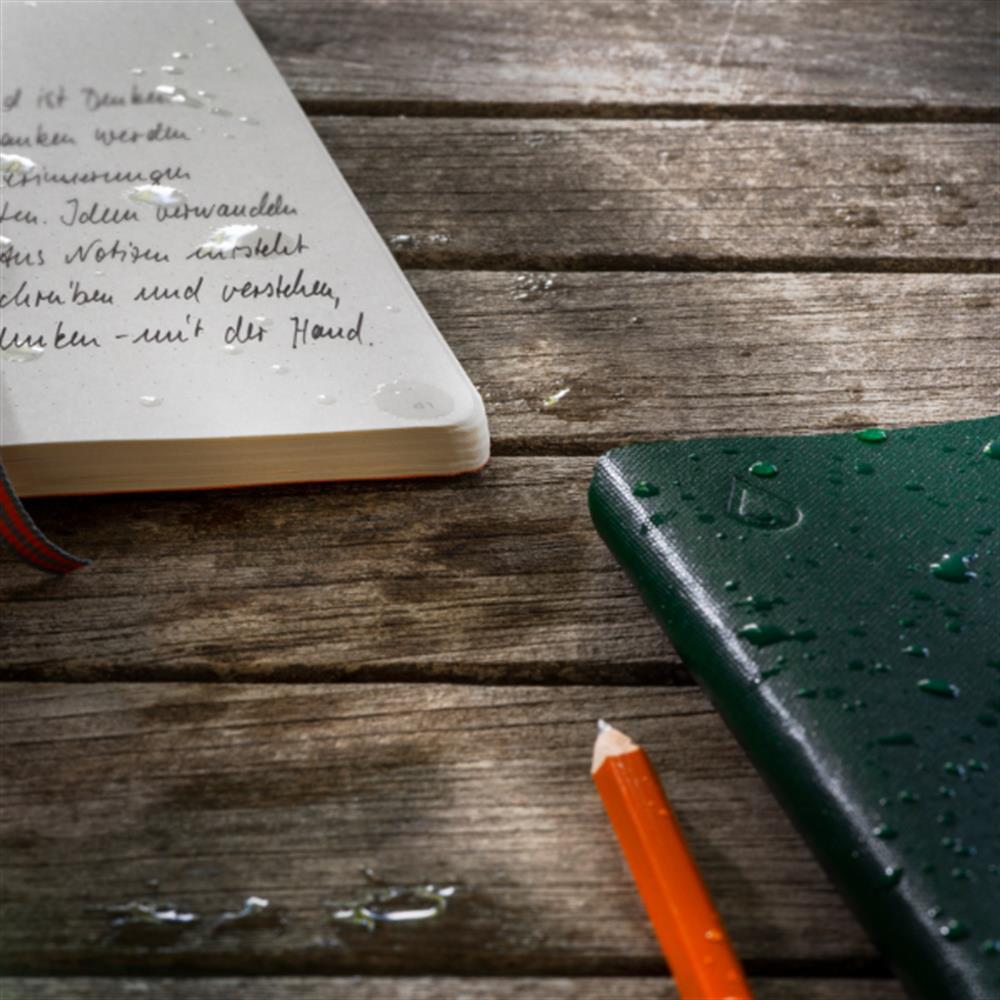 d ist Denken
anken werden
erinnerungen
ten. Ideen verwandeln
Aus Notizen entsteht
chreiben und verstehen,
denken - mit der Hand.
41